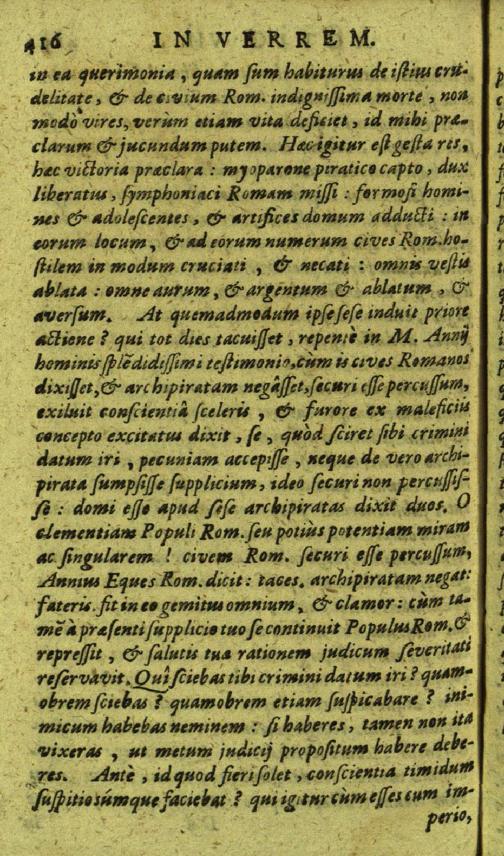 416 IN VERREM.
in ea querimonia, quam sum habiturus de istius cru-
delitate, & de civium Rom. indignissima morte, non
modò vires, verum etiam vita deficiet, id mihi præ-
clarum & jucundum putem. Hæc igitur est gesta res,
hæc victoria præclara: myoparone piratico capto, dux
liberatus, symphoniaci Romam missi: formosi homi-
nes & adolescentes, & artifices domum adducti: in
eorum locum, & ad eorum numerum cives Rom. ho-
stilem in modum cruciati, & necati: omnis vestis
ablata: omne aurum, & argentum & ablatum, &
aversum. At quemadmodum ipse sese induit priore
actione? qui tot dies tacuisset, repentè in M. Annij
hominis splēdidissimi testimonio, cùm is cives Romanos
dixisset, & archipiratam negâsset, securi esse percussum,
exiluit conscientiâ sceleris, & furore ex maleficiis
concepto excitatus dixit, se, quòd sciret sibi crimini
datum iri, pecuniam accepisse, neque de vero archi-
pirata sumpsisse supplicium, ideo securi non percussis-
se: domi esse apud sese archipiratas dixit duos. O
clementiam Populi Rom. seu potiùs potentiam miram
ac singularem! civem Rom. securi esse percussum,
Annius Eques Rom. dicit: taces. archipiratam negat:
fateris. fit in eo gemitus omnium, & clamor: cùm ta-
mē à præsenti supplicio tuo se continuit Populus Rom. &
repressit, & salutis tuæ rationem judicum severitati
reservavit. Quî sciebas tibi crimini datum iri? quam-
obrem sciebas? quamobrem etiam suspicabare? ini-
micum habebas neminem: si haberes, tamen non ita
vixeras, ut metum judicij propositum habere debe-
res. Antè, id quod fieri solet, conscientia timidum
suspitiosúmque faciebat? qui igitur cùm esses cum im-
perio,